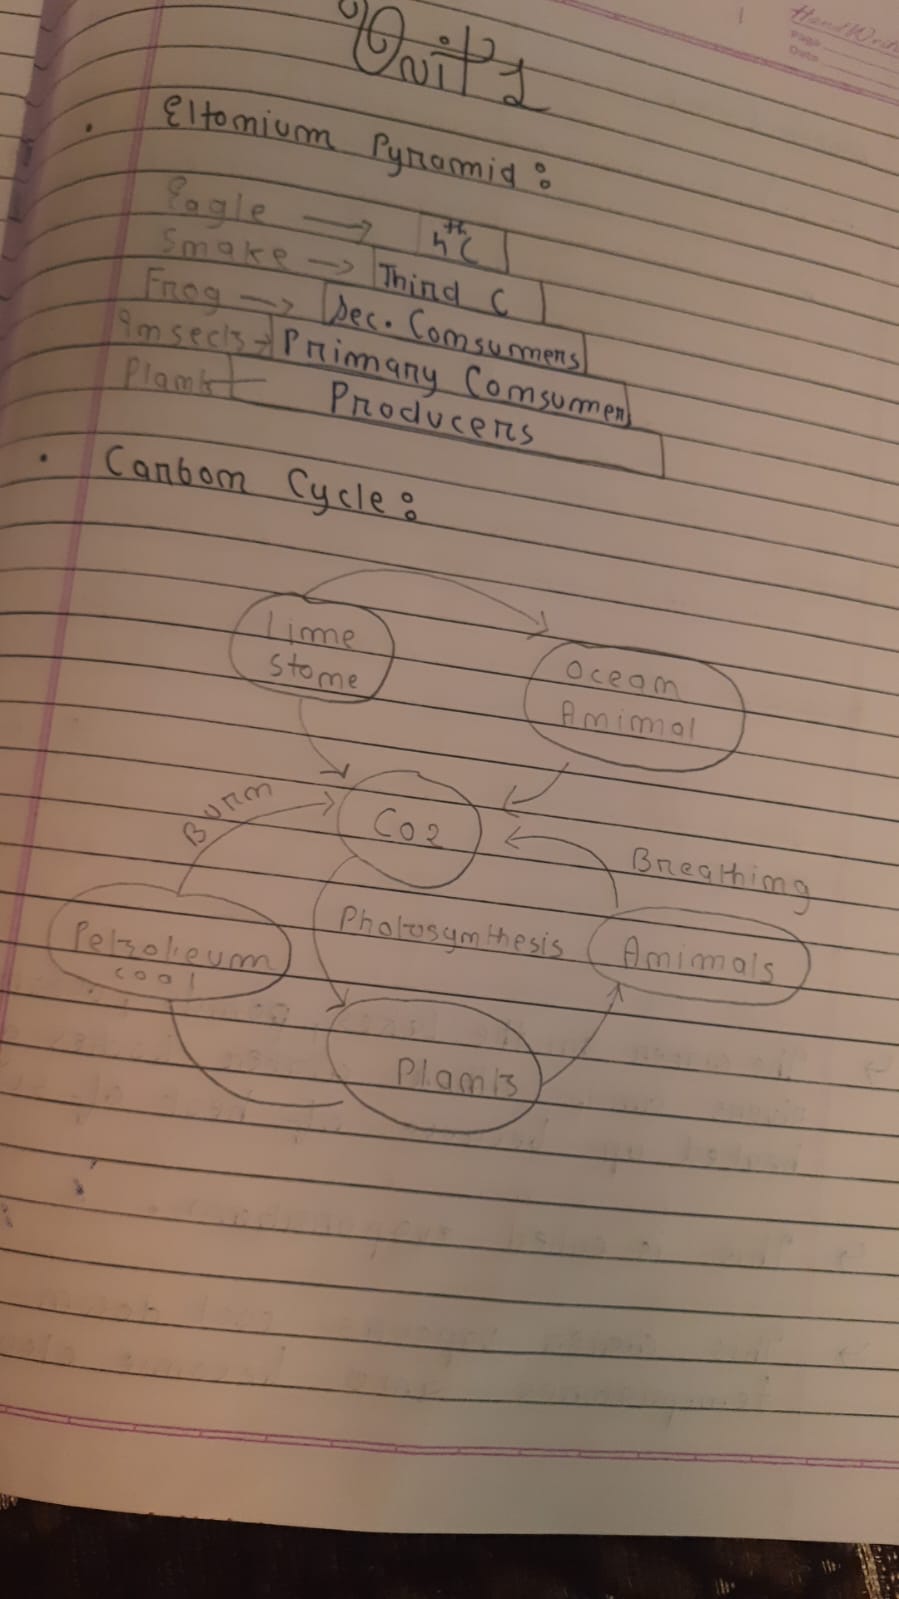 Unit 1
Eltonium Pyramid:
Eagle → 4th C
Snake → Third C
Frog → Sec. Consumers
Insects → Primary Consumer
Plants Producers
Carbon Cycle:
Lime
Stone
Ocean
Animal
CO2
Burn
Breathing
Photosynthesis
Petrolieum
coal
Animals
Plants